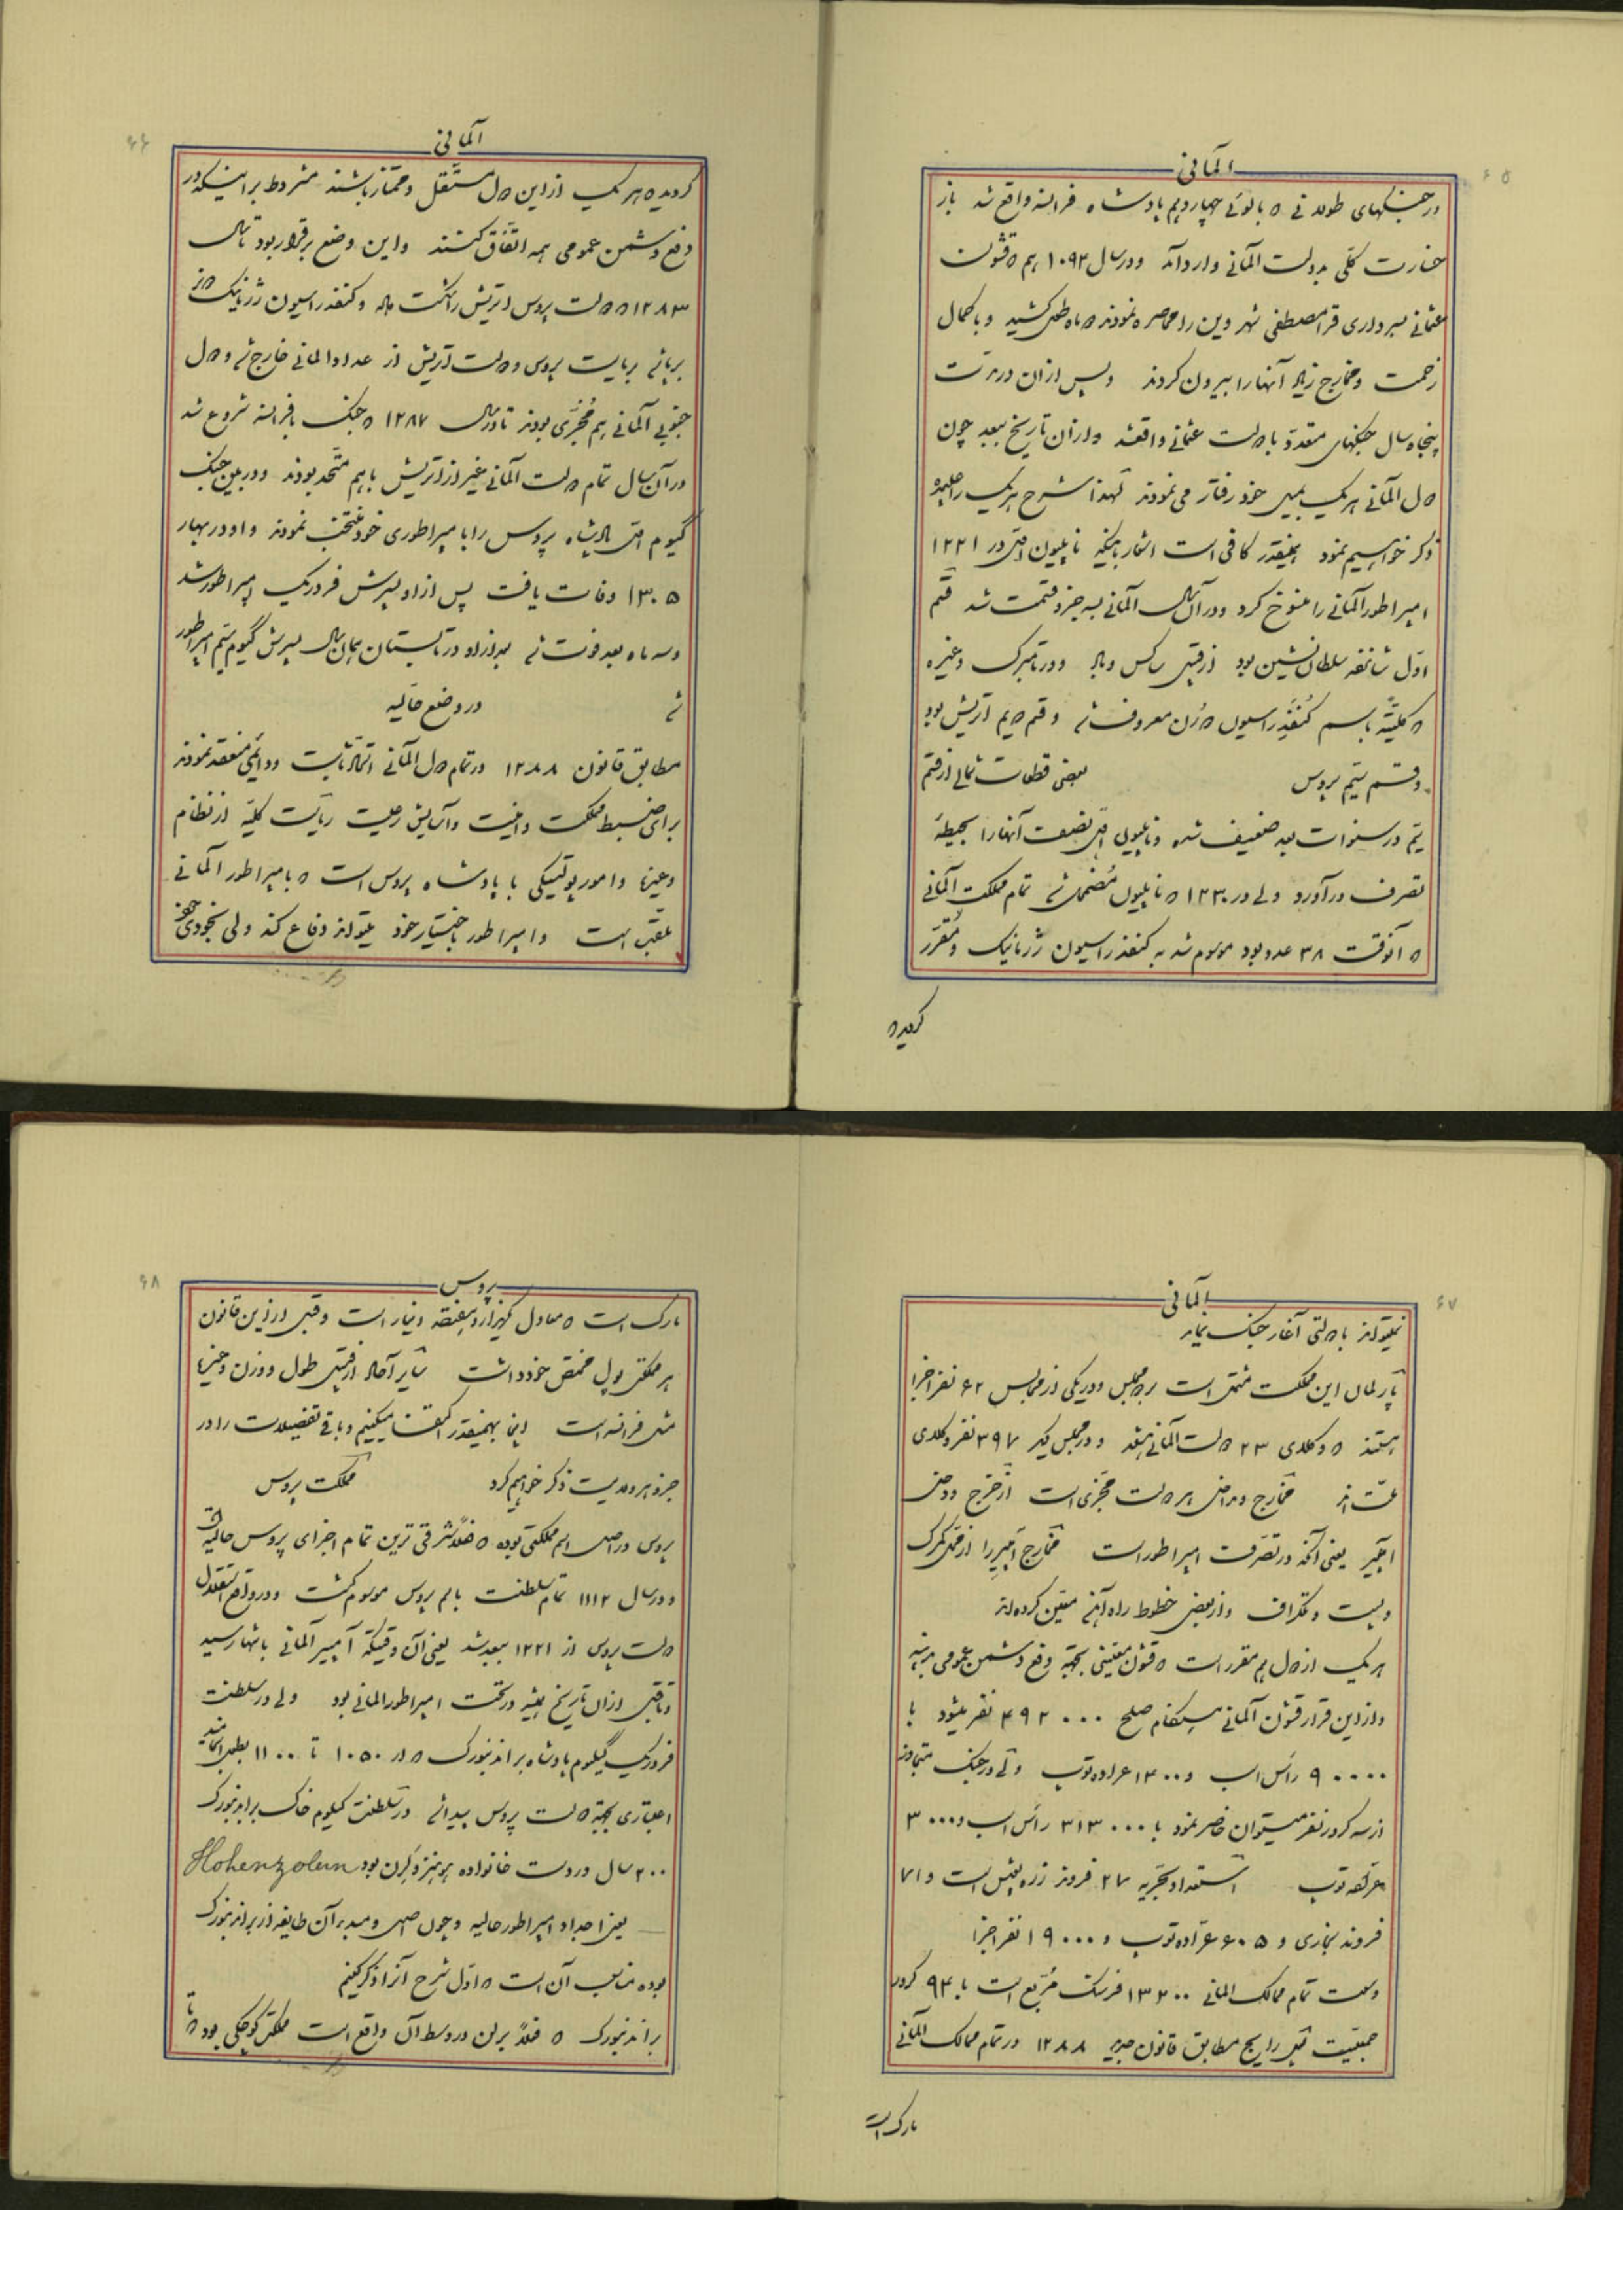 ۶۵
آلمانی
در جنگهای طولانی که با لوئی چهاردهم پادشاه فرانسه واقع شد باز
خسارت کلّی بدولت آلمانی وارد آمد و در سال ۱۰۹۴ هم که قشون
عثمانی بسرداری قرا مصطفی شهر وین را محاصره نمودند دو ماه طول کشید و با کمال
زحمت و مخارج زیاد آنها را بیرون کردند و پس از آن در مدّت
پنجاه سال جنگهای متعدّد با دولت عثمانی واقع شد و از آن تاریخ ببعد چون
دول آلمانی هر یک بمیل خود رفتار می نمودند لهذا شرح هر یک را علیحده
ذکر خواهیم نمود همینقدر کافی است اشاره باینکه ناپلیون اوّل در ۱۲۲۱
امپراطور آلمانی را منسوخ کرد و در آن سال آلمانی بسه جزو قسمت شد قسم
اوّل شانزده سلطان نشین بود از قبیل ساکس و باد و ورتامبرک و غیره
که کلیّتةً باسم کُنفِدِراسیون دُرَن معروف شد و قسم دویم اتریش بود
و قسم سیّم پروس بعضی قطعات شمالی از قسم
سیّم در سنوات بعد ضعیف شده و ناپلیون اوّل نصف آنها را بحیطهٔ
تصرف درآورد ولی در ۱۲۳۰ که ناپلیون مُضمحل شد تمام مملکت آلمانی
که آنوقت ۳۸ عدد بود موسوم شد به کنفدراسیون ژرمانیک و مُقرّر
گردید که
۶۶
آلمانی
گردید که هر یک از این دول مستقل و ممتاز باشند مشروط بر اینکه در
دفع دشمن عمومی همه اتّفاق کنند و این وضع برقرار بود تا سال
۱۲۸۳ که دولت پروس اتریش را شکست داد و کنفدراسیون ژرمانیک
برپا شد بریاست پروس و دولت اتریش از عداد آلمانی خارج شد و دول
جنوبی آلمانی هم مُجزّی بودند تا در سال ۱۲۸۷ که جنگ با فرانسه شروع شد
در آن سال تمام دولت آلمانی غیر از اتریش با هم متّحد بودند و در بین جنگ
گیوم اوّل پادشاه پروس را بامپراطوری خود منتخب نمودند و او در بهار
۱۳۰۵ وفات یافت پس از او پسرش فردریک امپراطور شد
و سه ماه بعد فوت شد بعد از او در تابستان همان سال پسرش گیوم سیّم امپراطور
شد در وضع حالیه
مطابق قانون ۱۲۸۸ در تمام دول آلمانی اتّحاد ثابت و دائمی منعقد نمودند
برای ضبط مملکت و امنیت و آسایش رعیت ریاست کلیّه از نظام
و غیرها و امور پولتیکی با پادشاه پروس است که بامپراطور آلمانی
ملقب است و امپراطور باختیار خود میتواند دفاع کند ولی بخودی خود
۶۷
آلمانی
نمیتواند با دولتی آغاز جنگ نماید
پارلمان این مملکت مشتمل است بر دو مجلس و در یکی از مجالس ۶۲ نفر اجزا
هستند که وکلای ۲۳ دولت آلمانی هستند و در مجلس دیگر ۳۹۷ نفر وکلای
ملّت اند مخارج و مداخل هر دولت مجزّی است از خرج و دخل
امپیر یعنی آنچه در تصرف امپراطور است مخارج امپیر را از قبیل گمرک
و پست و تلگراف و از بعضی خطوط راه آهن معیّن کرده اند
هر یک از دول هم مقرر است که قشون معیّنی بجهة دفع دشمن عمومی بدهند
و از این قرار قشون آلمانی هنگام صلح ۴۹۲۰۰۰ نفر میشود با
۹۰۰۰۰ رأس اسب و ۱۴۰۰ عراده توپ ولی در جنگ متجاوز
از سه کرور نفر میتوان حاضر نمود با ۳۱۳۰۰۰ رأس اسب و ۳۰۰۰
عرّاده توپ استعداد بحریه ۲۷ فروند زره پوش است و ۷۱
فروند بخاری و ۶۰۵ عرّاده توپ و ۱۹۰۰۰ نفر اجزا
وسعت تمام ممالک المانی ۱۳۲۰۰ فرسنگ مُربّع است با ۹۴ کرور
جمعیّت پول رایج مطابق قانون جدید ۱۲۸۸ در تمام ممالک آلمانی
مارک است
۶۸
پروس
مارک است که معادل یکهزار و هفتصد دینار است و قبل از این قانون
هر مملکتی پول مختص خود داشت سایر آحاد از قبیل طول و وزن و غیرها
مثل فرانسه است اینجا بهمینقدر اکتفا میکنیم و باقی تفصیلات را در
جزو هر ولایت ذکر خواهیم کرد مملکت پروس
پروس در اصل اسم مملکتی بوده که فعلاً شرقی ترین تمام اجزای پروس حالیه است
و در سال ۱۱۱۲ تمام سلطنت باسم پروس موسوم گشت و در واقع استقلال
دولت پروس از ۱۲۲۱ ببعد شد یعنی از آن وقتیکه آمپیر آلمانی بانتها رسید
و تا قبل از آن تاریخ همیشه در تحت امپراطور المانی بود ولی در سلطنت
فردریک گیلیوم پادشاه براندنبورک که از ۱۰۵۰ تا ۱۱۰۰ بطول انجامید
اعتباری بجهة دولت پروس پیدا شد در سلطنت گیلیوم خاک براندنبورک
۲۰۰ سال در دست خانواده هوهنزولرن بود Hohenzolern
یعنی اجداد امپراطور حالیه و چون اصل و مبدء آن طایفه از براندنبورک
بوده مناسب آن است که اوّل شرح آنرا ذکر کنیم
براندنبورک که فعلاً برلن در وسط آن واقع است مملکت کوچکی بود که تا